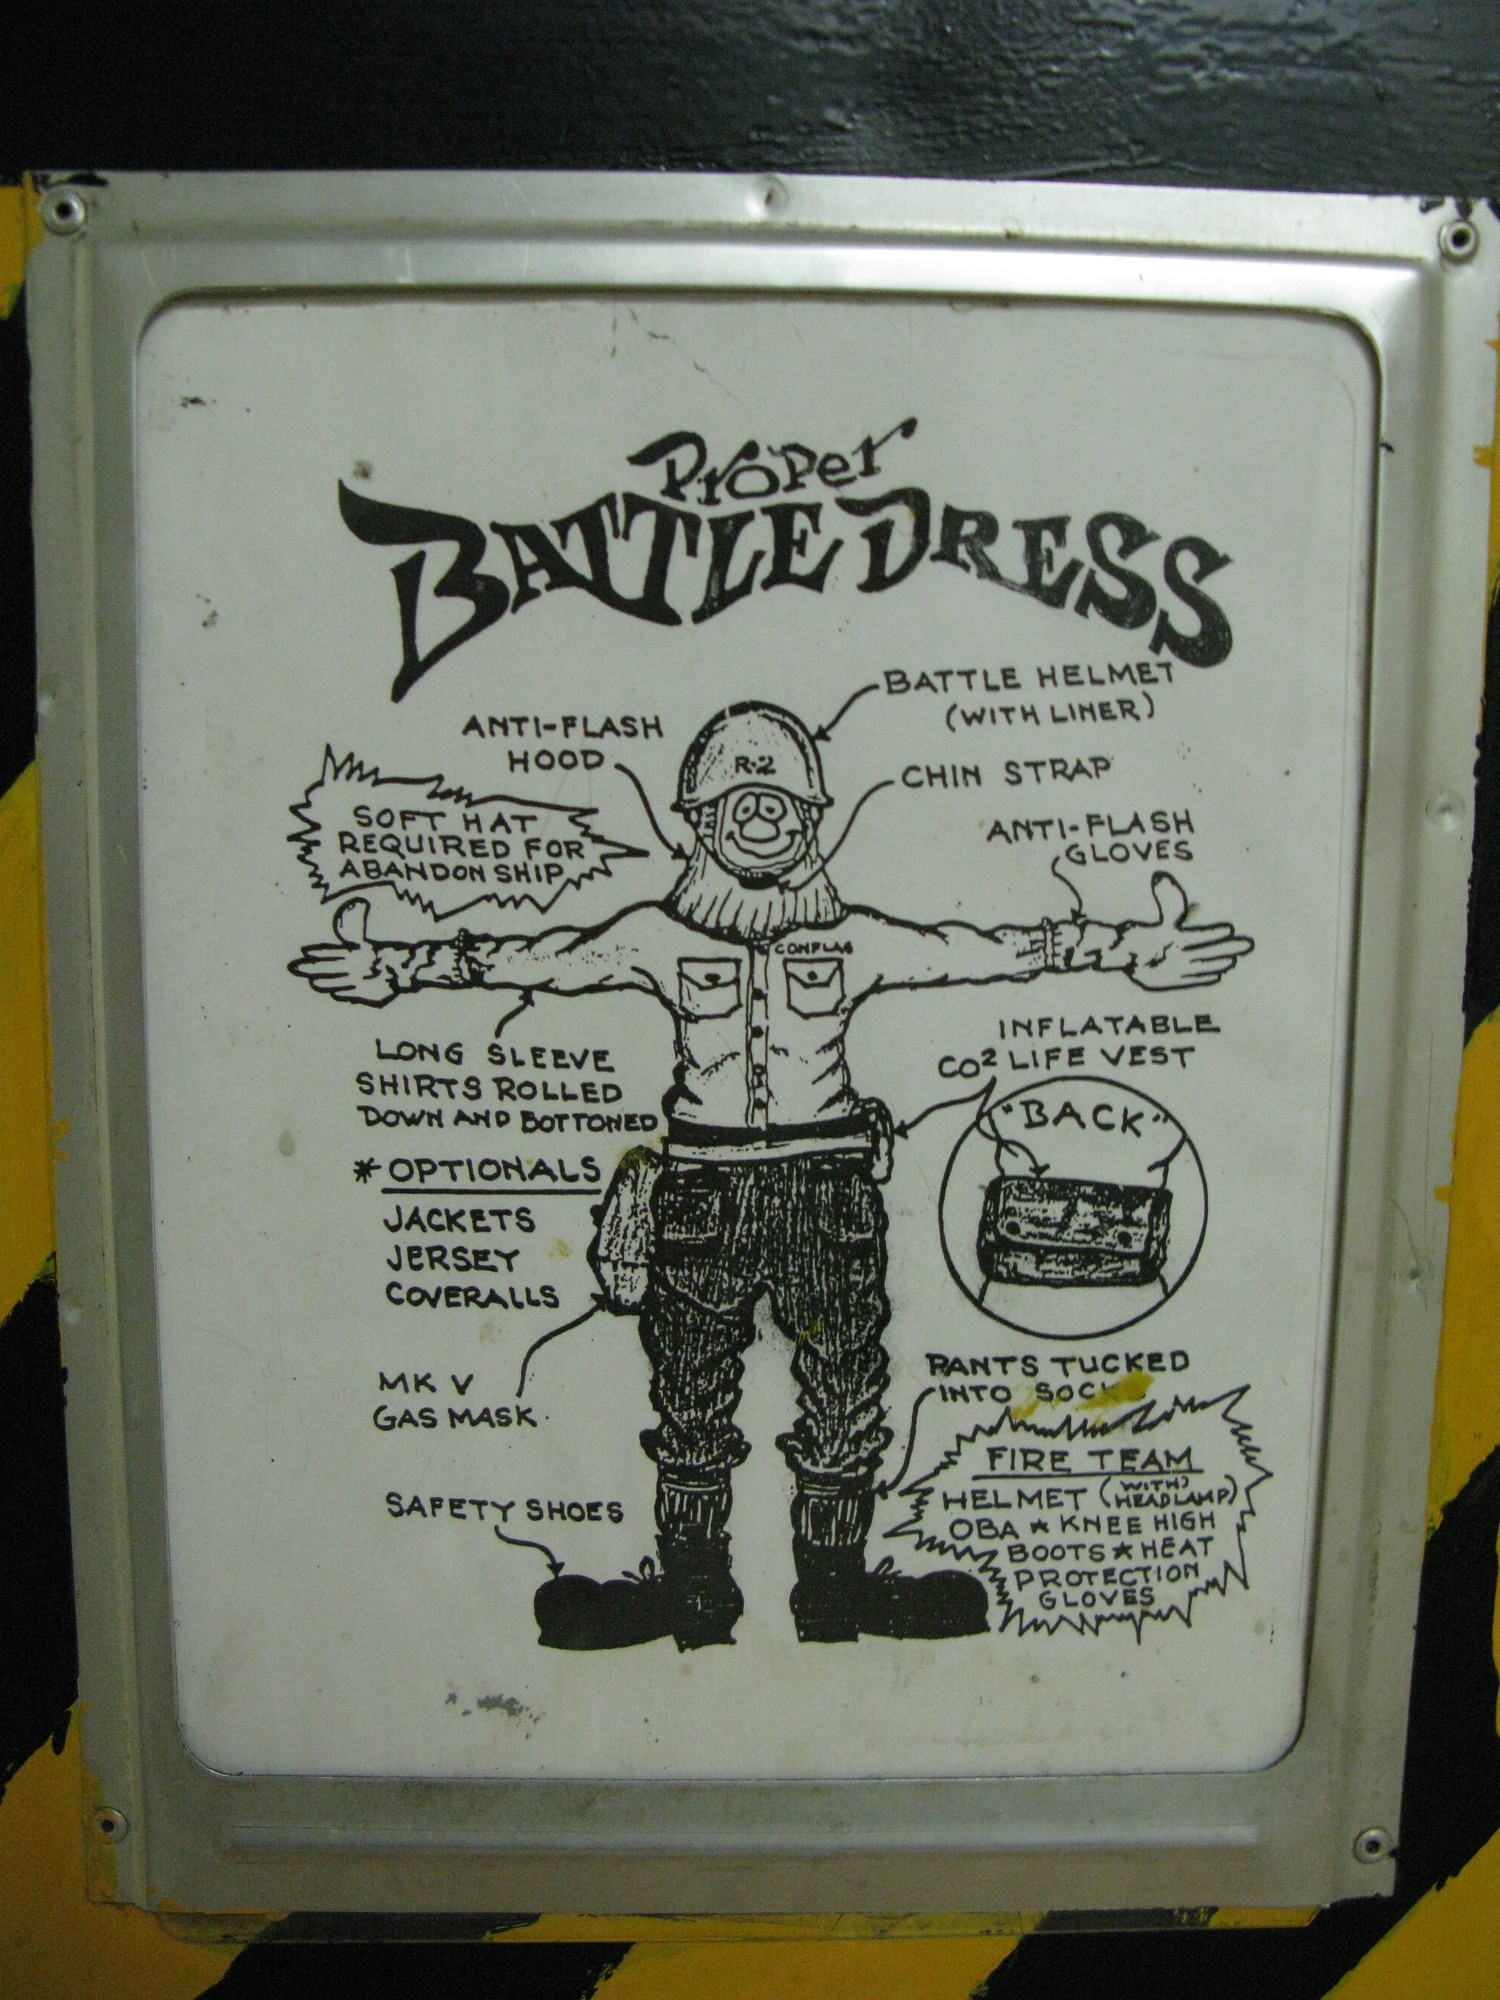 Proper
BATTLE DRESS
BATTLE HELMET
(WITH LINER)
ANTI-FLASH
HOOD
R-2
CHIN STRAP
SOFT HAT
REQUIRED FOR
ABANDON SHIP
ANTI-FLASH
GLOVES
CONFLAG
LONG SLEEVE
SHIRTS ROLLED
DOWN AND BOTTONED
INFLATABLE
CO2 LIFE VEST
"BACK"
* OPTIONALS
JACKETS
JERSEY
COVERALLS
MK V
GAS MASK
PANTS TUCKED
INTO
SAFETY SHOES
FIRE TEAM
HELMET (WITH HEADLAMP)
OBA ★ KNEE HIGH
BOOTS ★ HEAT
PROTECTION
GLOVES